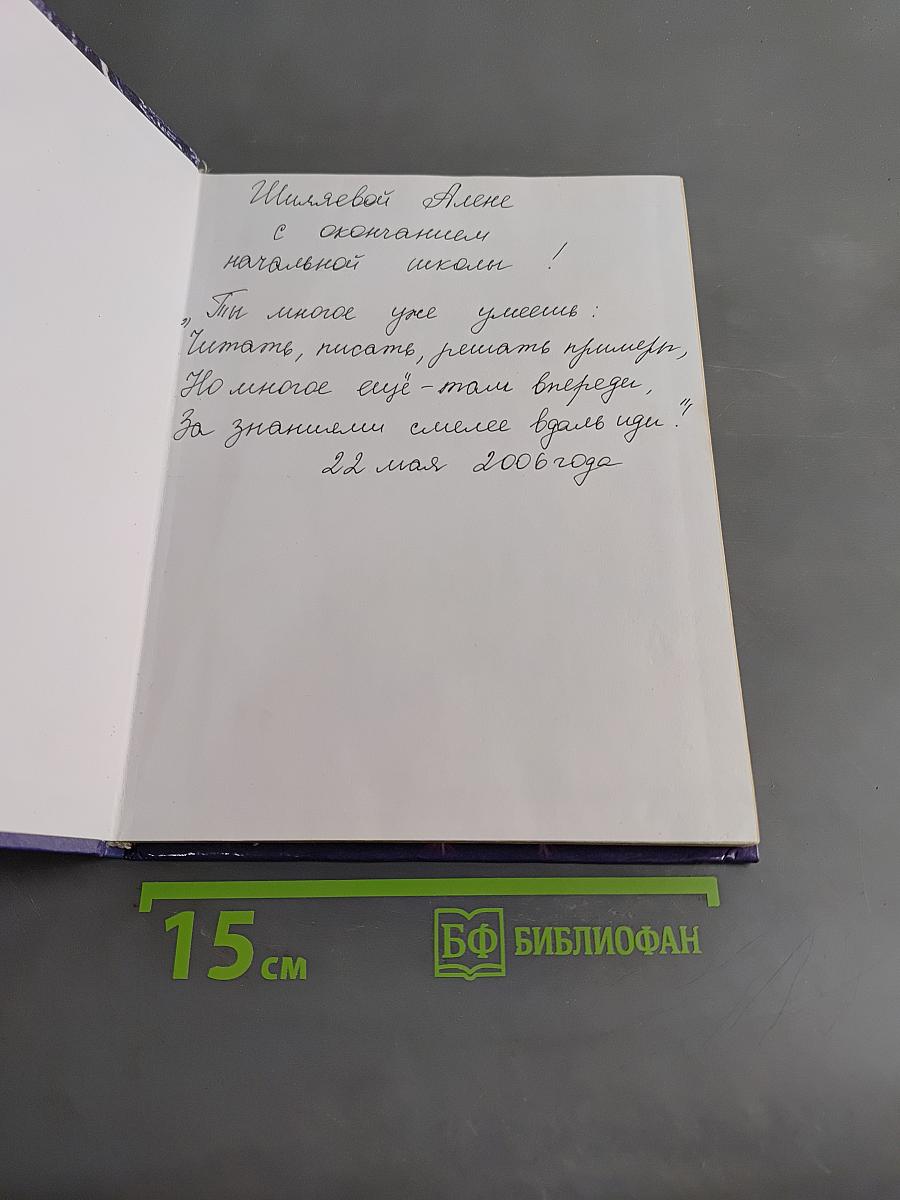 Шиляевой Алене
с окончанием
начальной школы !
„Ты многое уже умеешь:
Читать, писать, решать примеры,
Но многое ещё - там впереди,
За знаниями смелее вдаль иди."
22 мая 2006 года
15 см
БФ БИБЛИОФАН